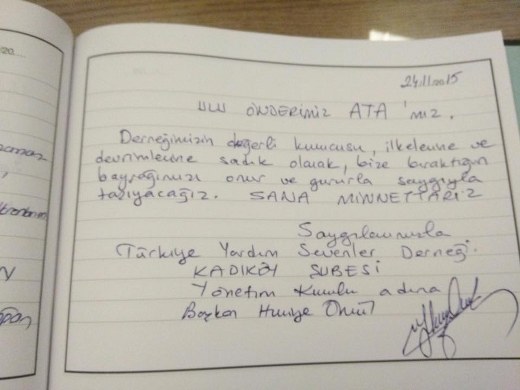 24.11.2015
ULU ÖNDERİMİZ ATA'MIZ.
Derneğimizin değerli kurucusu, ilkelerine ve
devrimlerine sadık olarak, bize bıraktığın
bayrağımızı onur ve gururla saygıyla
taşıyacağız. SANA MİNNETTARIZ
Saygılarımızla
Türkiye Yardım Sevenler Derneği.
KADIKÖY ŞUBESİ
Yönetim Kurulu adına
Başkan Huriye